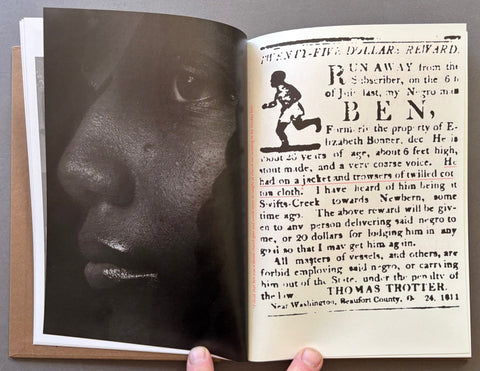 TWENTY-FIVE DOLLARS REWARD.
RUN AWAY from the
Subscriber, on the 6th
of July last, my Negro man
BEN,
Formerly the property of E-
lizabeth Bonner, dec He is
about 25 years of age, about 6 feet high,
stout made, and a very coarse voice. He
had on a jacket and trowsers of twilled cot
ton cloth. I have heard of him being in
Swifts-Creek towards Newbern, some
time ago. The above reward will be giv-
en to any person delivering said negro to
me, or 20 dollars for lodging him in any
goal so that I may get him again.
All masters of vessels, and others, are
forbid employing said negro, or carrying
him out of the State, under the penalty of
the law
THOMAS TROTTER.
Near Washington, Beaufort County, 24, 1811